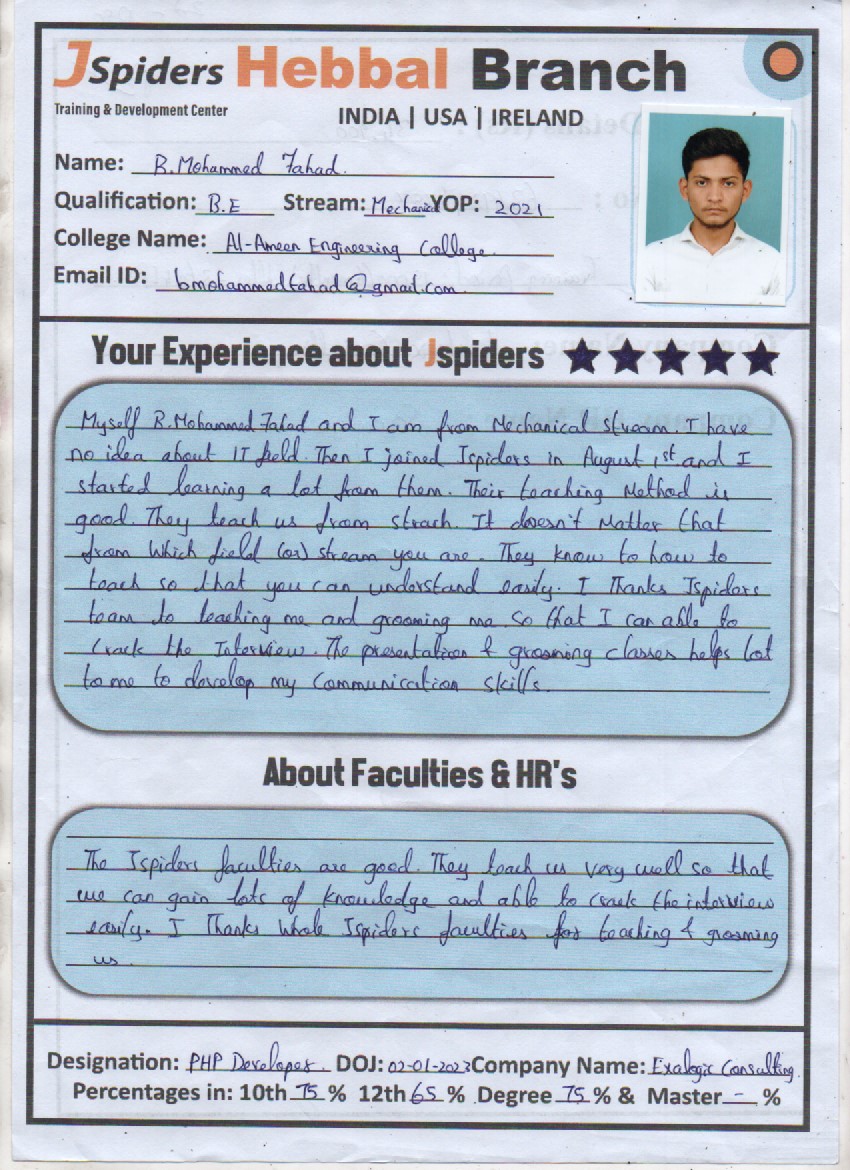 JSpiders Hebbal Branch
Training & Development Center
INDIA | USA | IRELAND
Name: B.Mohammed Fahad.
Qualification: B.E Stream: Mechanical YOP: 2021
College Name: Al-Ameen Engineering College.
Email ID: bmohammedfahad@gmail.com
Your Experience about Jspiders
Myself B.Mohammed Fahad and I am from Mechanical stream. I have
no idea about IT field. Then I joined Jspiders in August 1st and I
started learning a lot from them. Their teaching Method is
good. They teach us from strach. It doesn't Matter that
from which field (or) stream you are. They know to how to
teach so that you can understand easily. I Thanks Jspiders
team to teaching me and grooming me so that I can able to
crack the Interview. The presentation & grooming classes helps lot
to me to develop my Communication skills.
About Faculties & HR's
The Jspiders faculties are good. They teach us very well so that
we can gain lots of knowledge and able to crack the interview
easily. I Thanks whole Jspiders faculties for teaching & grooming
us.
Designation: PHP Developer. DOJ: 02-01-2023 Company Name: Exalogic Consulting
Percentages in: 10th 75 % 12th 65 % Degree 75 % & Master - %